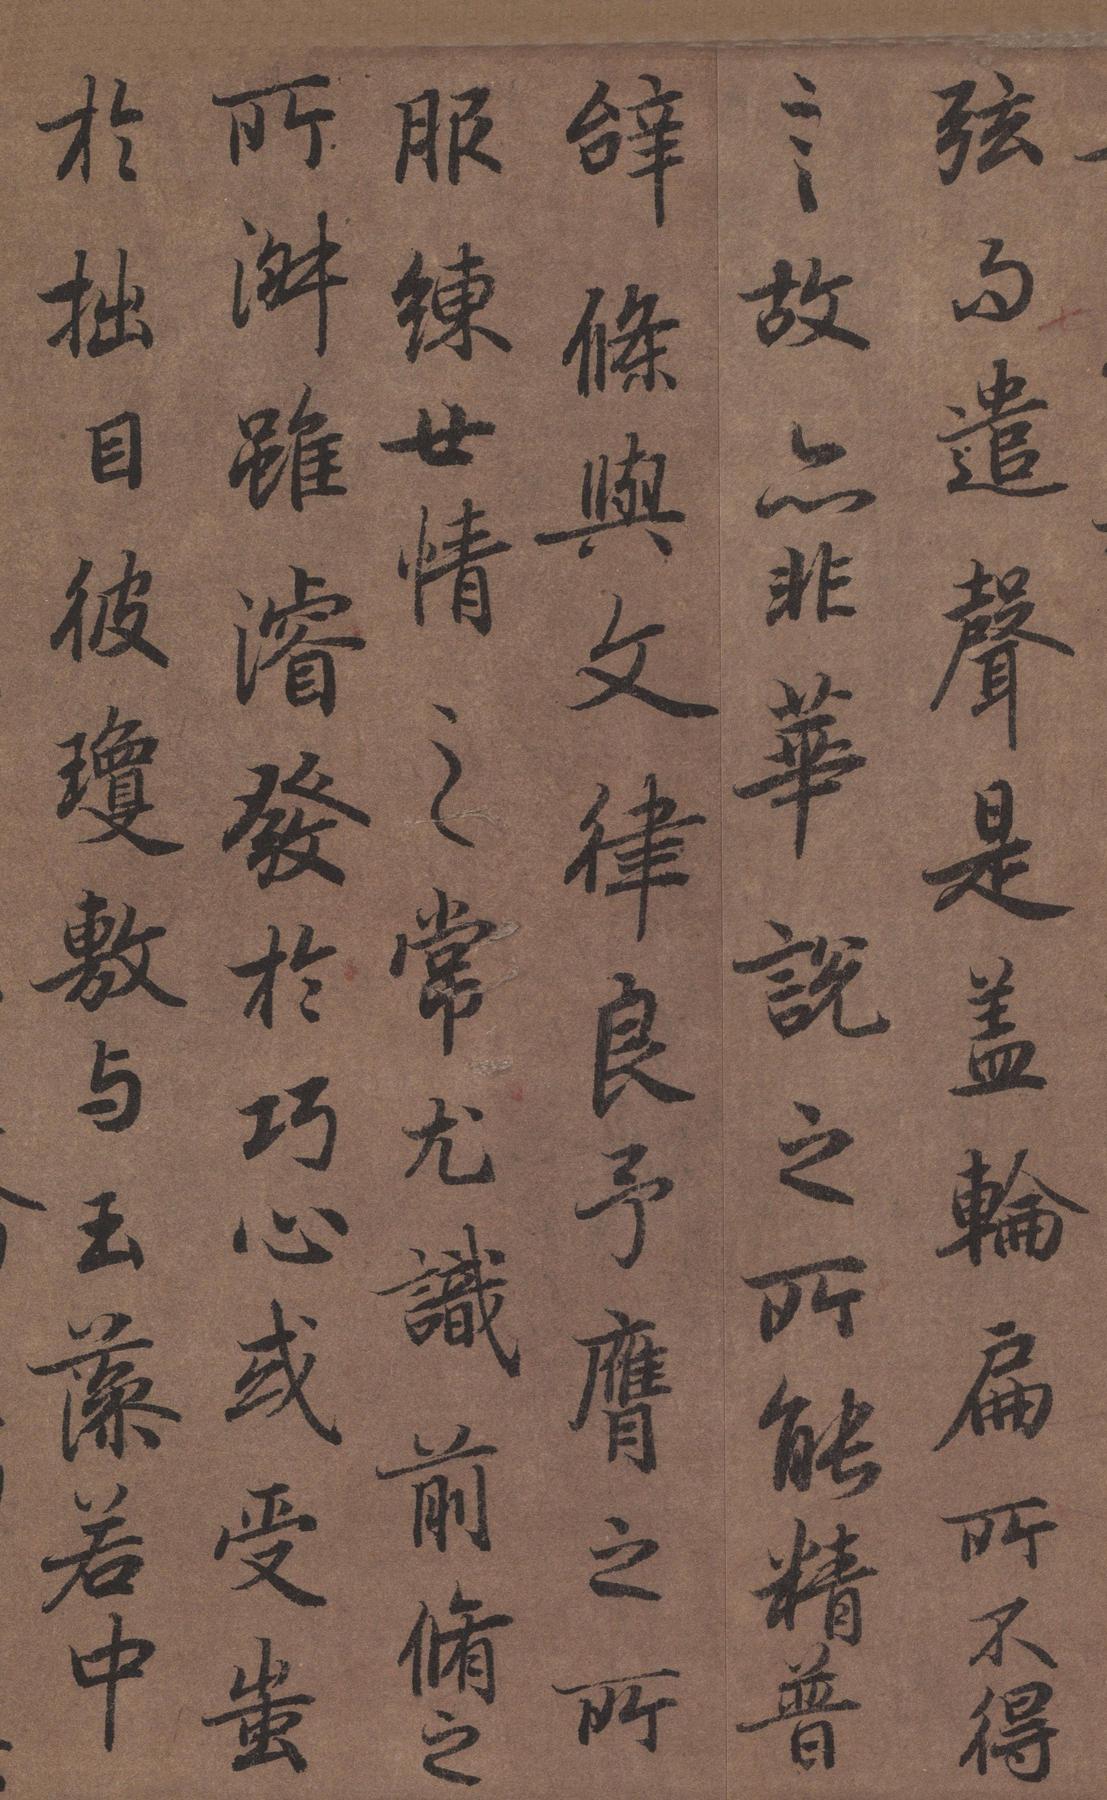 弦而遣聲是盖輪扁所不得
言故亦非華說之所能精普
辝條與文律良予膺之所
服練世情之常尤識前脩之
所淑雖濬發於巧心或受蚩
於拙目彼瓊敷与玉藻若中